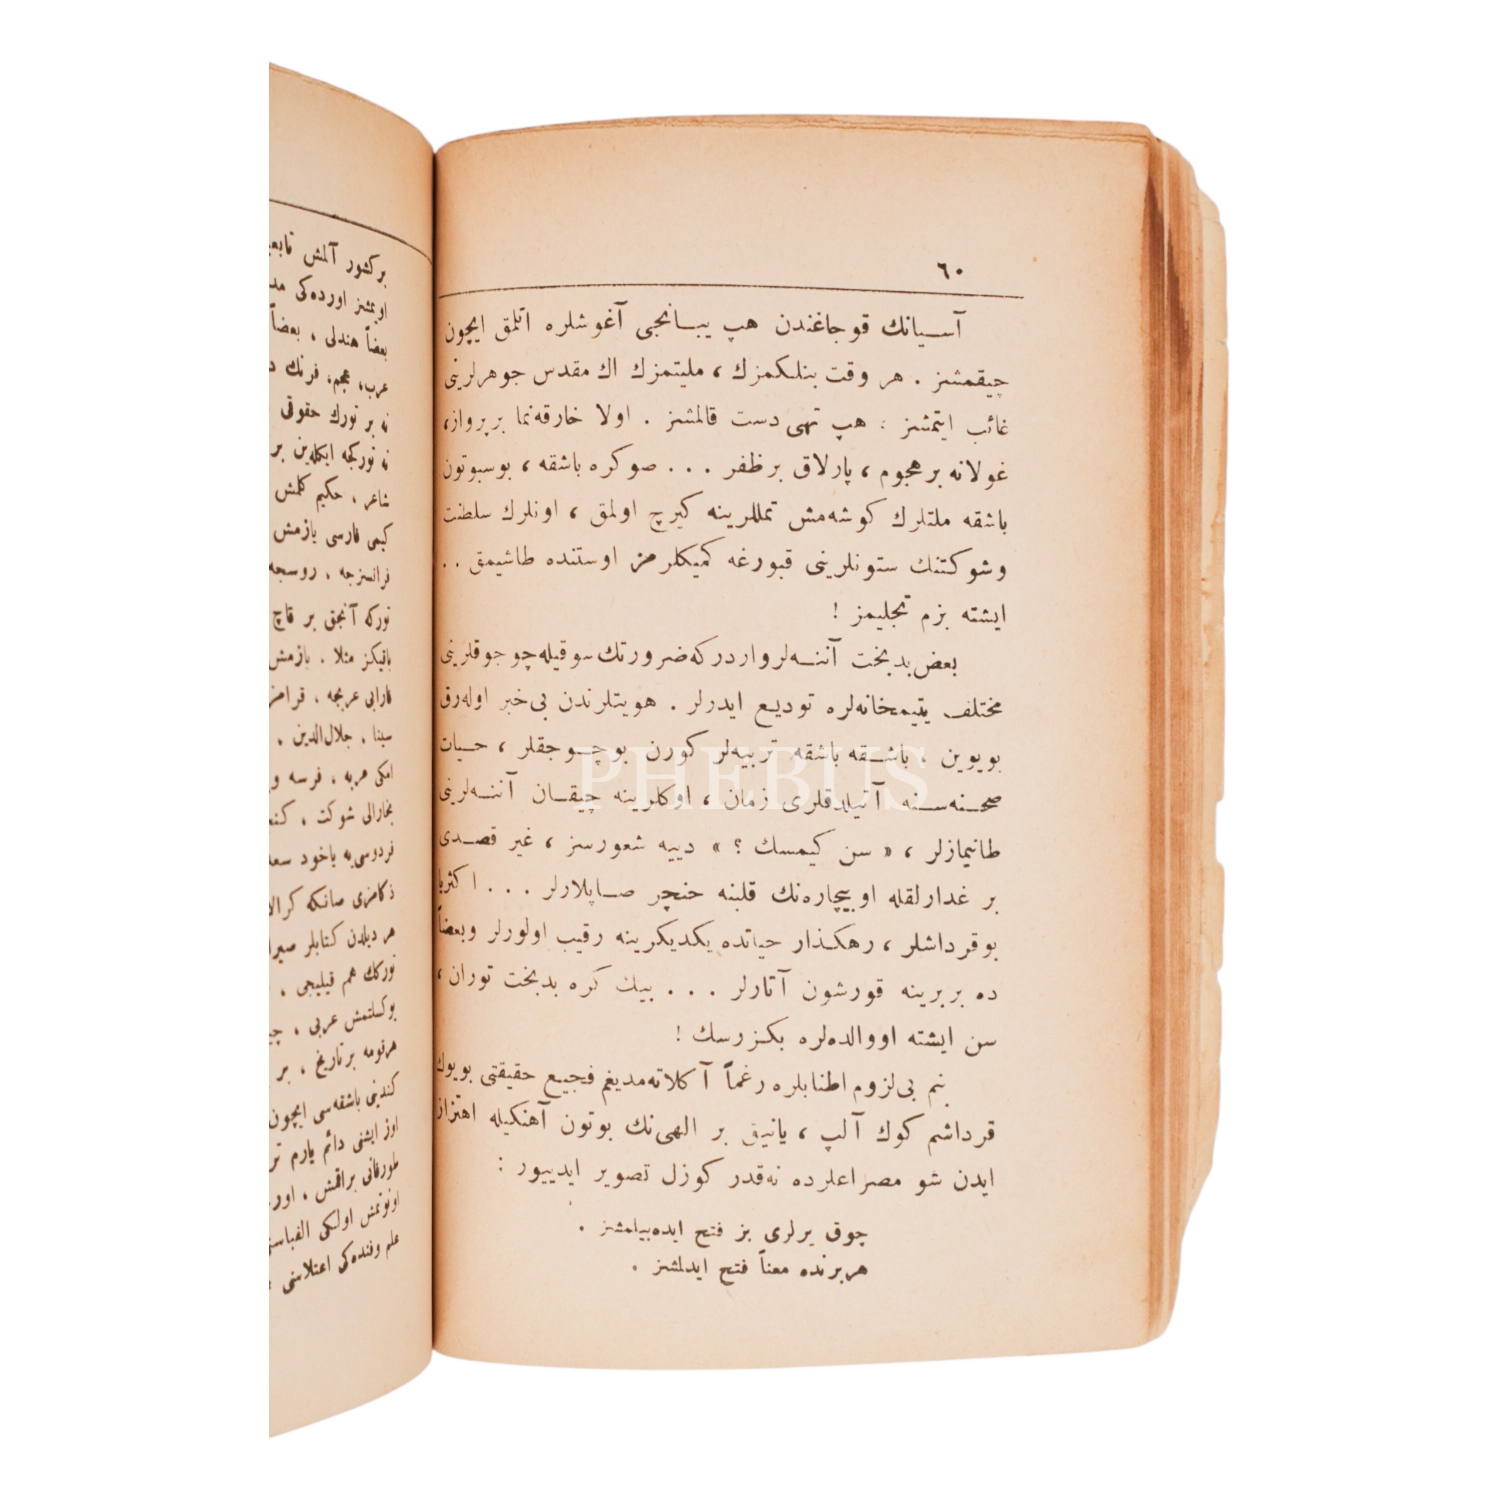 ٦٠
آسيانك قوجاغندن هپ يبانجى آغوشلره اتلمق ايچون
چيقمشز . هر وقت بنلكمزك ، مليتمزك اك مقدس جوهرلرينى
غائب ايتمشز : هپ تهى دست قالمشز . اولا خارقه نما برپرواز،
غولانه برهجوم ، پارلاق برظفر . . . صوكره باشقه ، بوسبوتون
باشقه ملتلرك كوشه مش تمللرينه كيرچ اولمق ، اونلرك سلطنت
وشوكتنك ستونلرينى قبورغه كميكلرمز اوستنده طاشيمق . .
ايشته بزم تجليمز !
بعض بدبخت آننه لر واردركه ضرورتك سوقيله چوجوقلرينى
مختلف يتيمخانه لره توديع ايدرلر . هويتلرندن بى خبر اوله رق
بويوين ، باشقه باشقه تربيه لر كورن بوچوجقلر ، حيات
صحنه سنه آتيلدقلرى زمان ، اوكلرينه چيقان آننه لرينى
طانيمازلر ، « سن كيمسك ؟ » دييه شعورسز ، غير قصدى
بر غدارلقله اوبيچاره نك قلبنه خنچر صاپلارلر . . . اكثريا
بوقرداشلر ، رهكذار حياتده يكديكرينه رقيب اولورلر وبعضاً
ده بربرينه قورشون آتارلر . . . بيك كره بدبخت توران ،
سن ايشته اووالده لره بكزرسك !
بنم بى لزوم اطنابلره رغماً آكلاته مديغم فجيع حقيقتى بويوك
قرداشم كوك آلپ ، يانيق بر الهى نك بوتون آهنكيله اهتزاز
ايدن شو مصراعلرده نه قدر كوزل تصوير ايدييور :
چوق يرلرى بز فتح ايده بيلمشز .
هربرنده معناً فتح ايدلمشز .
بركشور آلمش تابعي
اويمشز اورده كى
بعضاً هندلى ، بعضاً
عرب، عجم، فرنك
نه بر تورك حقوقى
نه توركجه ايكله ين بر
شاعر ، حكيم كلمش
كيمى فارسى يازمش
فرانسزجه ، روسجه
توركه آنجق بر قاچ
باقيكز مثلا . يازمش
فارابى عربجه ،
سينا ، جلال الدين .
بخارالى شوكت ،
فردوسى يه ياخود
ذكامزى صانكه
هر ديلدن كتابلر
توركك هم قيليجى ،
يوكسلتمش عربى ،
هرقومه برتاريخ ، بر
كندينى باشقه سى ايچون
اوز ايشنى دائم يارم
طورفانى براقمش ،
اونوتمش اولكى الفباسنى
علم وفنده كى اعتلاسنى
PHEBUS